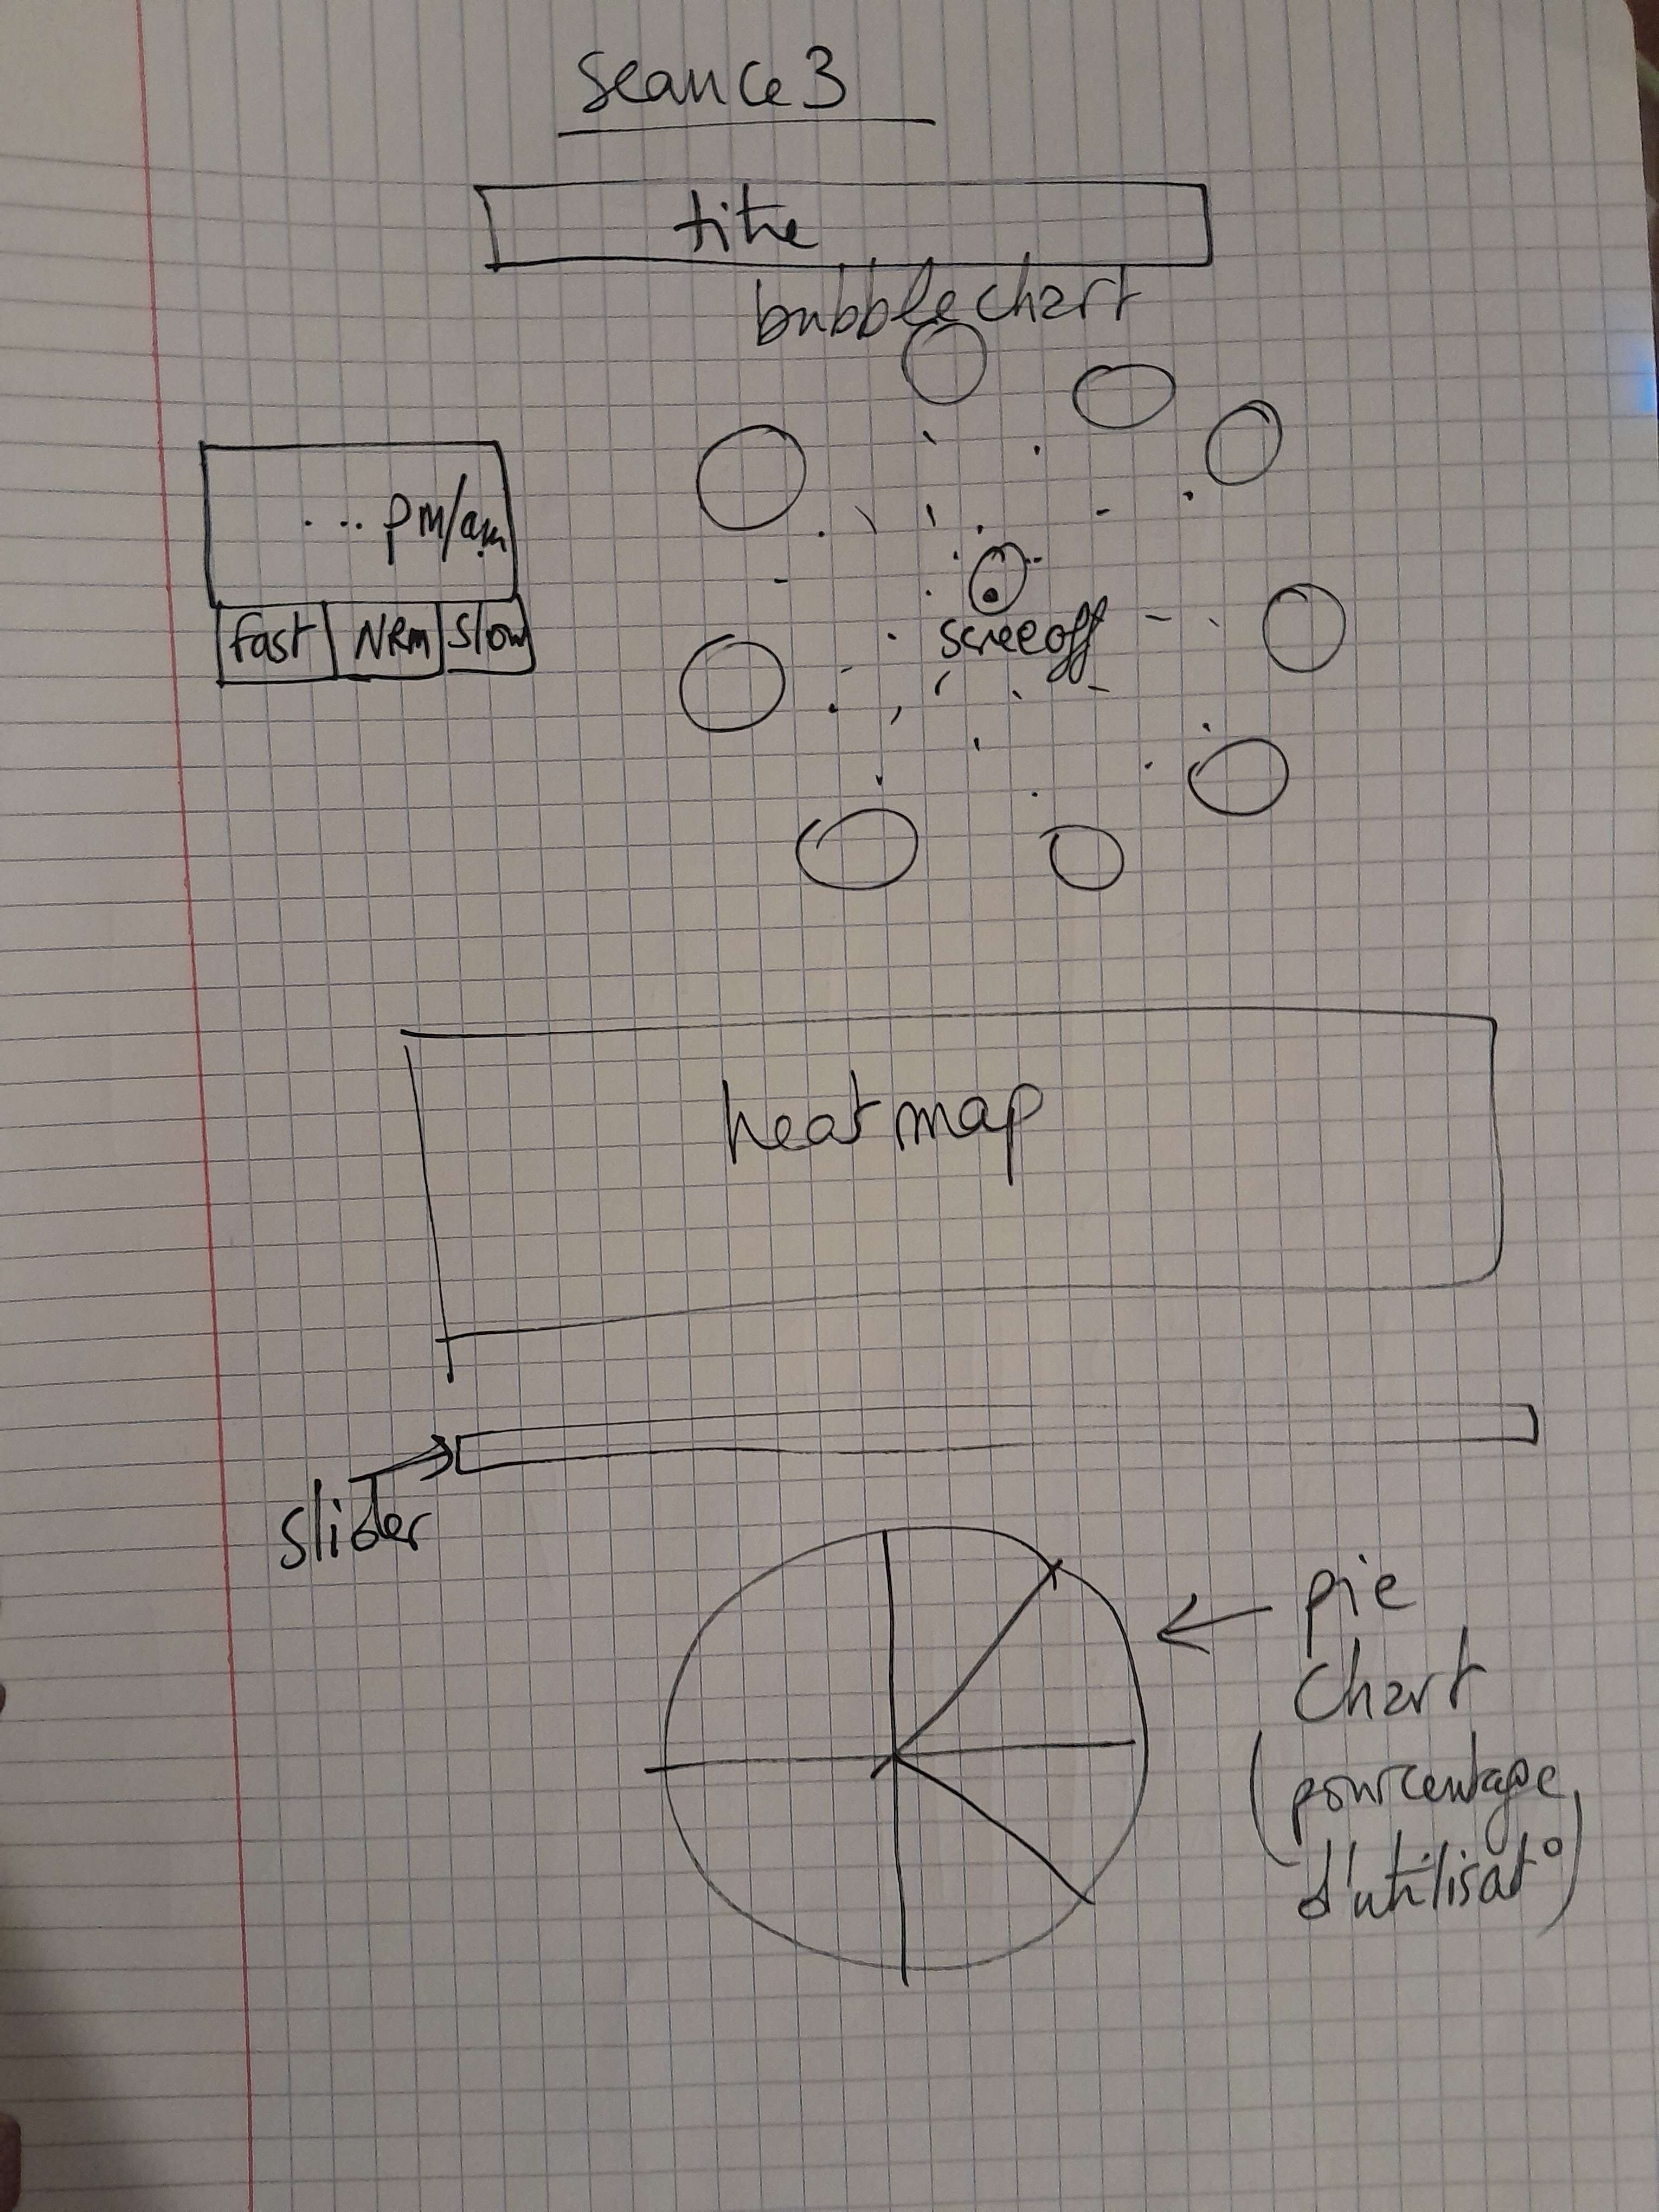 Seance 3
titre
bubble chart
... pm/am
fast NRm Slow
screeoff
heat map
slider
pie
chart
(pourcentage
d'utilisat°)